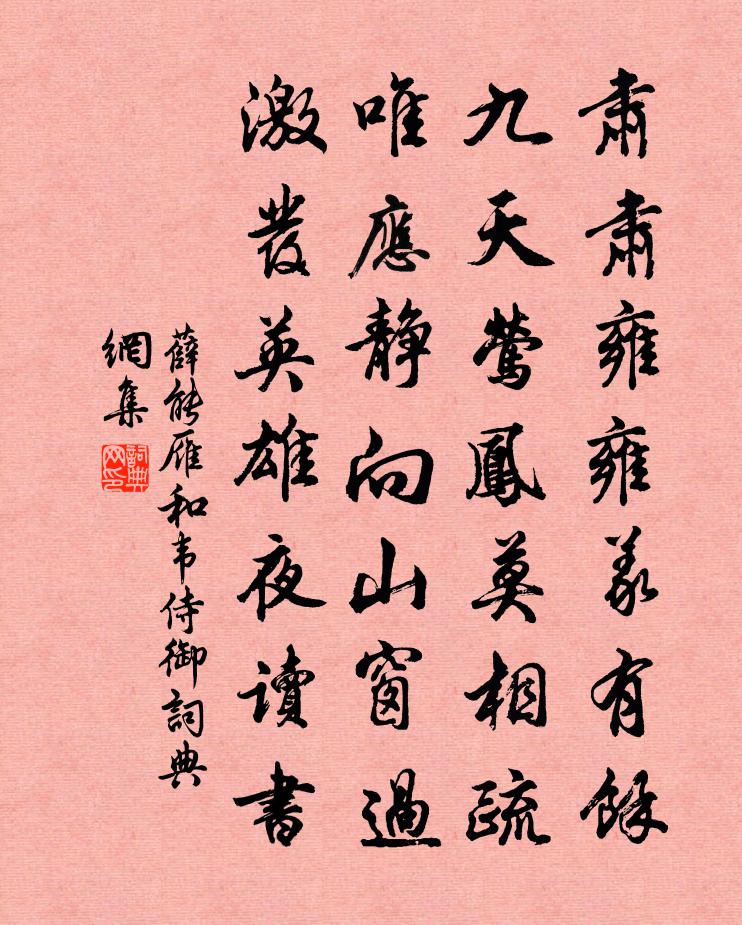 肅肅雍雍義有餘
九天鶯鳳莫相疏
唯應靜向山窗過
激發英雄夜讀書
薛能雁和韦侍御詞典
網集
詞典
网印